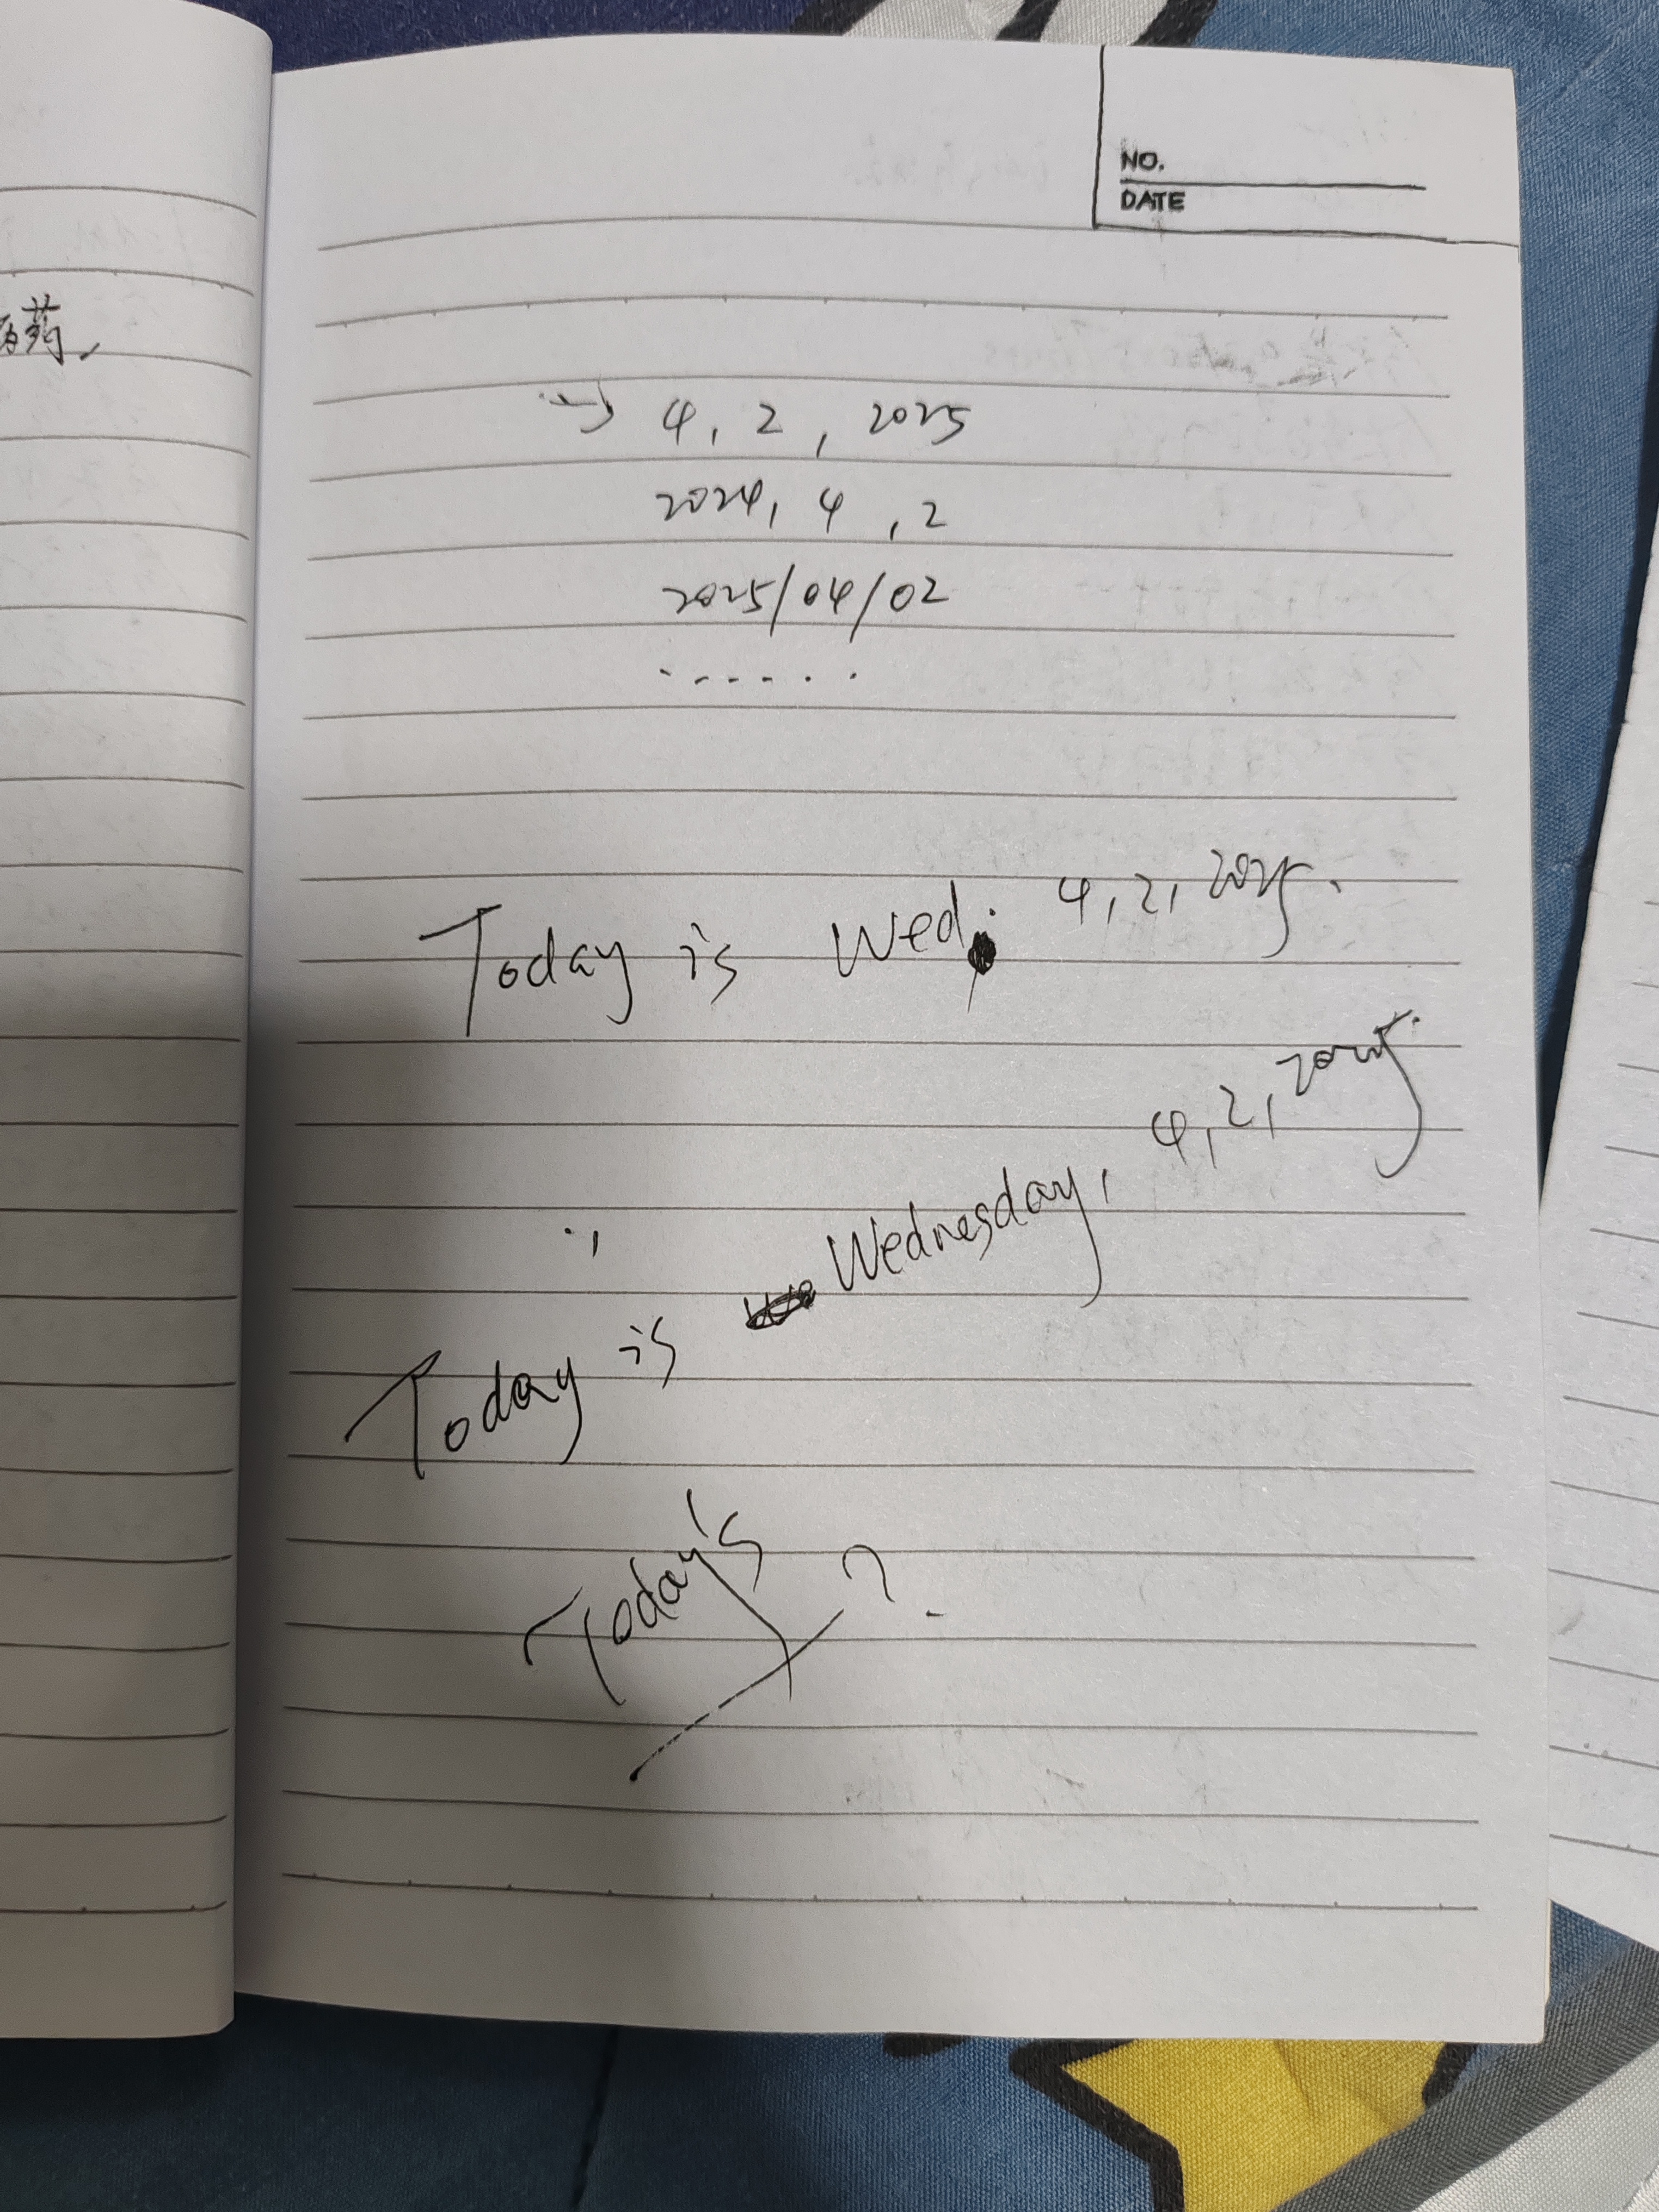 NO.
DATE
药,
→ 4, 2, 2025
2024, 4, 2
2025/04/02
......
Today is Wed. 4, 2, 2025.
Today is Wednesday, 4, 2, 2025.
Today's
?